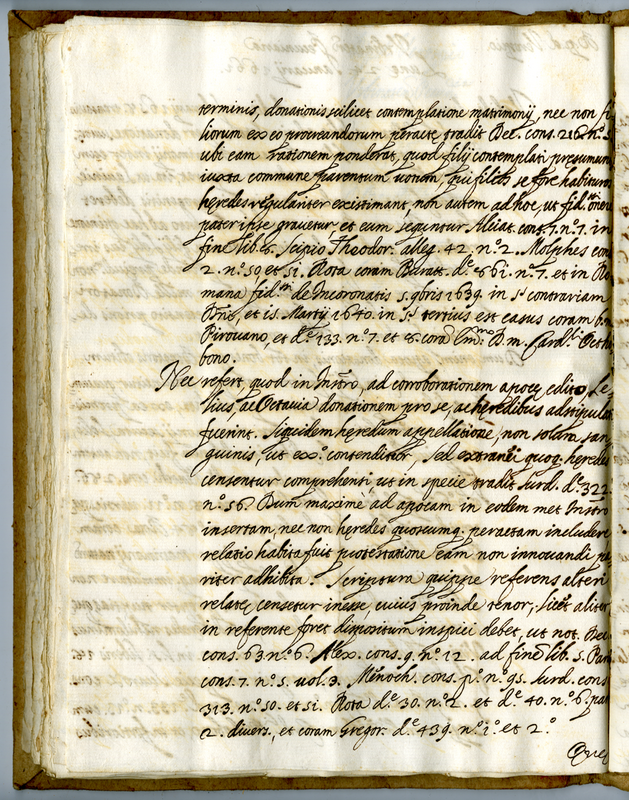 terminis, donationis scilicet contemplatione matrimonij, nec non fi
liorum ex eo procreandorum peractę tradit Bec. cons. 216. n.º 5.
ubi eam rationem ponderat, quod filij contemplati presumun
iuxta commune parentum uotum, qui filios se fore habituros
hęredes regulariter existimant, non autem ad hoc, ut fid.tti onere
pater ipse grauetur, et eum sequntur Alciat. cons. 7. n.º 1. in
fine lib. 8. Scipio Theodor. alleg. 42. n.º 2. Molphes con
2. n.º 50 et 51. Rota coram Buratt. d.e 861. n.º 7. et in Ro
mana fid.tti de Incoronatis 5. 9bris 1639. in s.l contrariam
et 15. Martij 1640. in s.l tertius est casus coram b. m.
Pirouano, et d.e 133. n.º 7. et 8. corā Em.mo D. m. Card.li Otth
bono.
Nec refert, quod in Instro, ad corroborationem apocę edito, Le
lius, ac Octauia donationem pro se, ac hęredibus adstipulati
fuerint. Siquidem hęredum appellatione, non solum san
guinis, ut ex.º contenditur, sed extranei quoq. hęredes
censentur comprehensi, ut in specie tradit Surd. d.e 322.
n.º 56. Dum maximè ad apocam in eodem met Instro
insertam, nec non hęredes quoscumq. peractam includere
relatio habita fuit protestatione eam non innouandi pa
riter adhibita. Scriptura quippe referens alteri
relatę, censetur inesse, cuius proinde tenor, licet aliter
in referente foret dispositum inspici debet, ut not. Bec.
cons. 63. n.º 6. Alex. cons. 9. n.º 12. ad finē lib. 5. Par
cons. 7. n.º 5. uol. 3. Menoch. cons. p.º n.º 95. Surd. cons
313. n.º 50. et 51. Rota d.e 30. n.º 2. et d.e 40. n.º 6. par
2. diuers., et coram Gregor. d.e 439. n.º 1.º et 2.º